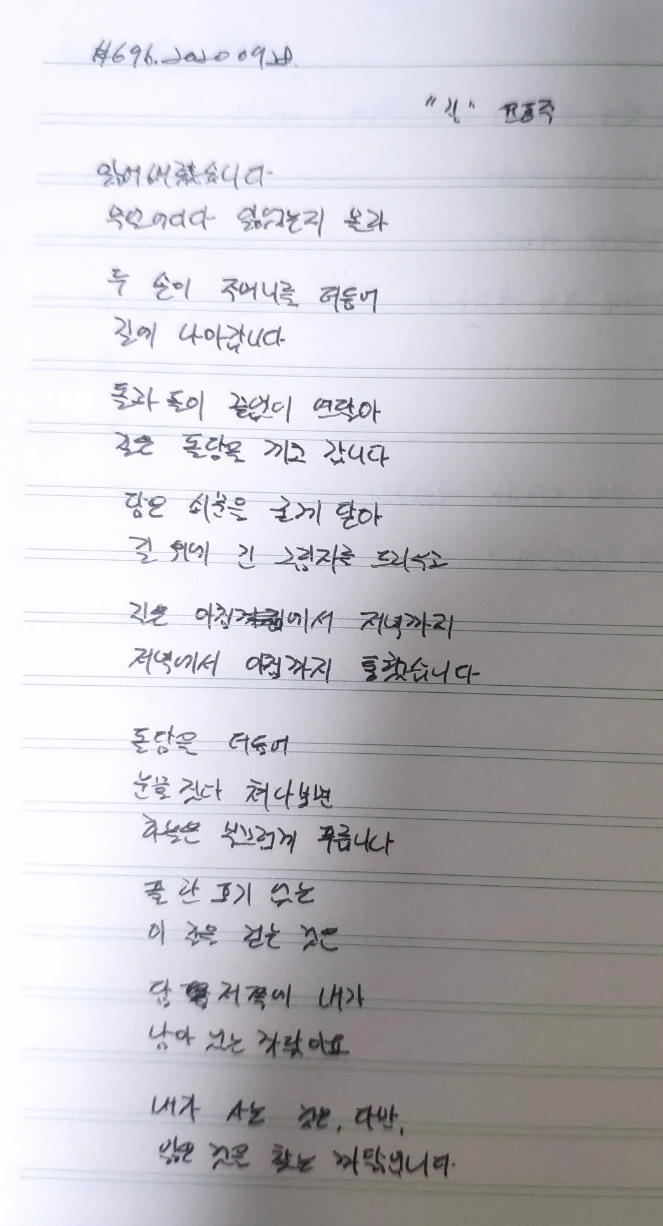 #696. 20200928.
"길" 윤동주
잃어버렸습니다
무얼 어디다 잃었는지 몰라
두 손이 주머니를 더듬어
길에 나아갑니다
돌과 돌이 끝없이 연달아
길은 돌담을 끼고 갑니다
담은 쇠문을 굳게 닫아
길 위에 긴 그림자를 드리우고
길은 아침에서 저녁까지
저녁에서 아침까지 통했습니다
돌담을 더듬어
눈물 짓다 쳐다보면
하늘은 부끄럽게 푸릅니다
풀 한 포기 없는
이 길을 걷는 것은
담 저쪽에 내가
남아 있는 까닭이요
내가 사는 것은, 다만,
잃은 것을 찾는 까닭입니다.